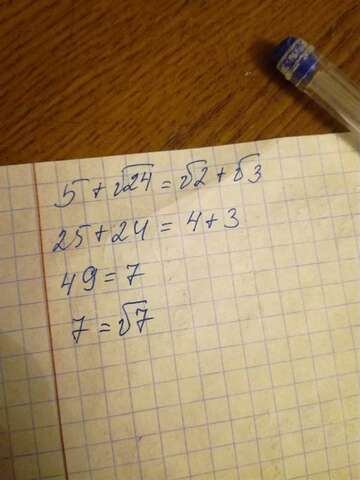 5 + √24 = √2 + √3
25 + 24 = 4 + 3
49 = 7
7 = √7